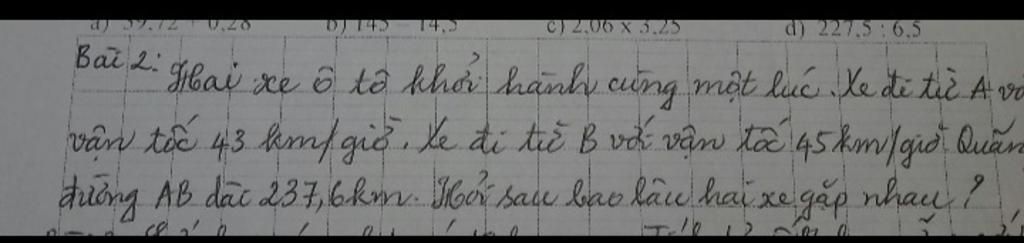 a) 39,72 + 0,28 b) 145 - 14,5 c) 2,06 x 3,25 d) 227,5 : 6,5
Bài 2: Hai xe ô tô khởi hành cùng một lúc. Xe đi từ A vớ
vận tốc 43 km/giờ. Xe đi từ B với vận tốc 45 km/giờ Quãn
đường AB dài 237,6km. Hỏi sau bao lâu hai xe gặp nhau?